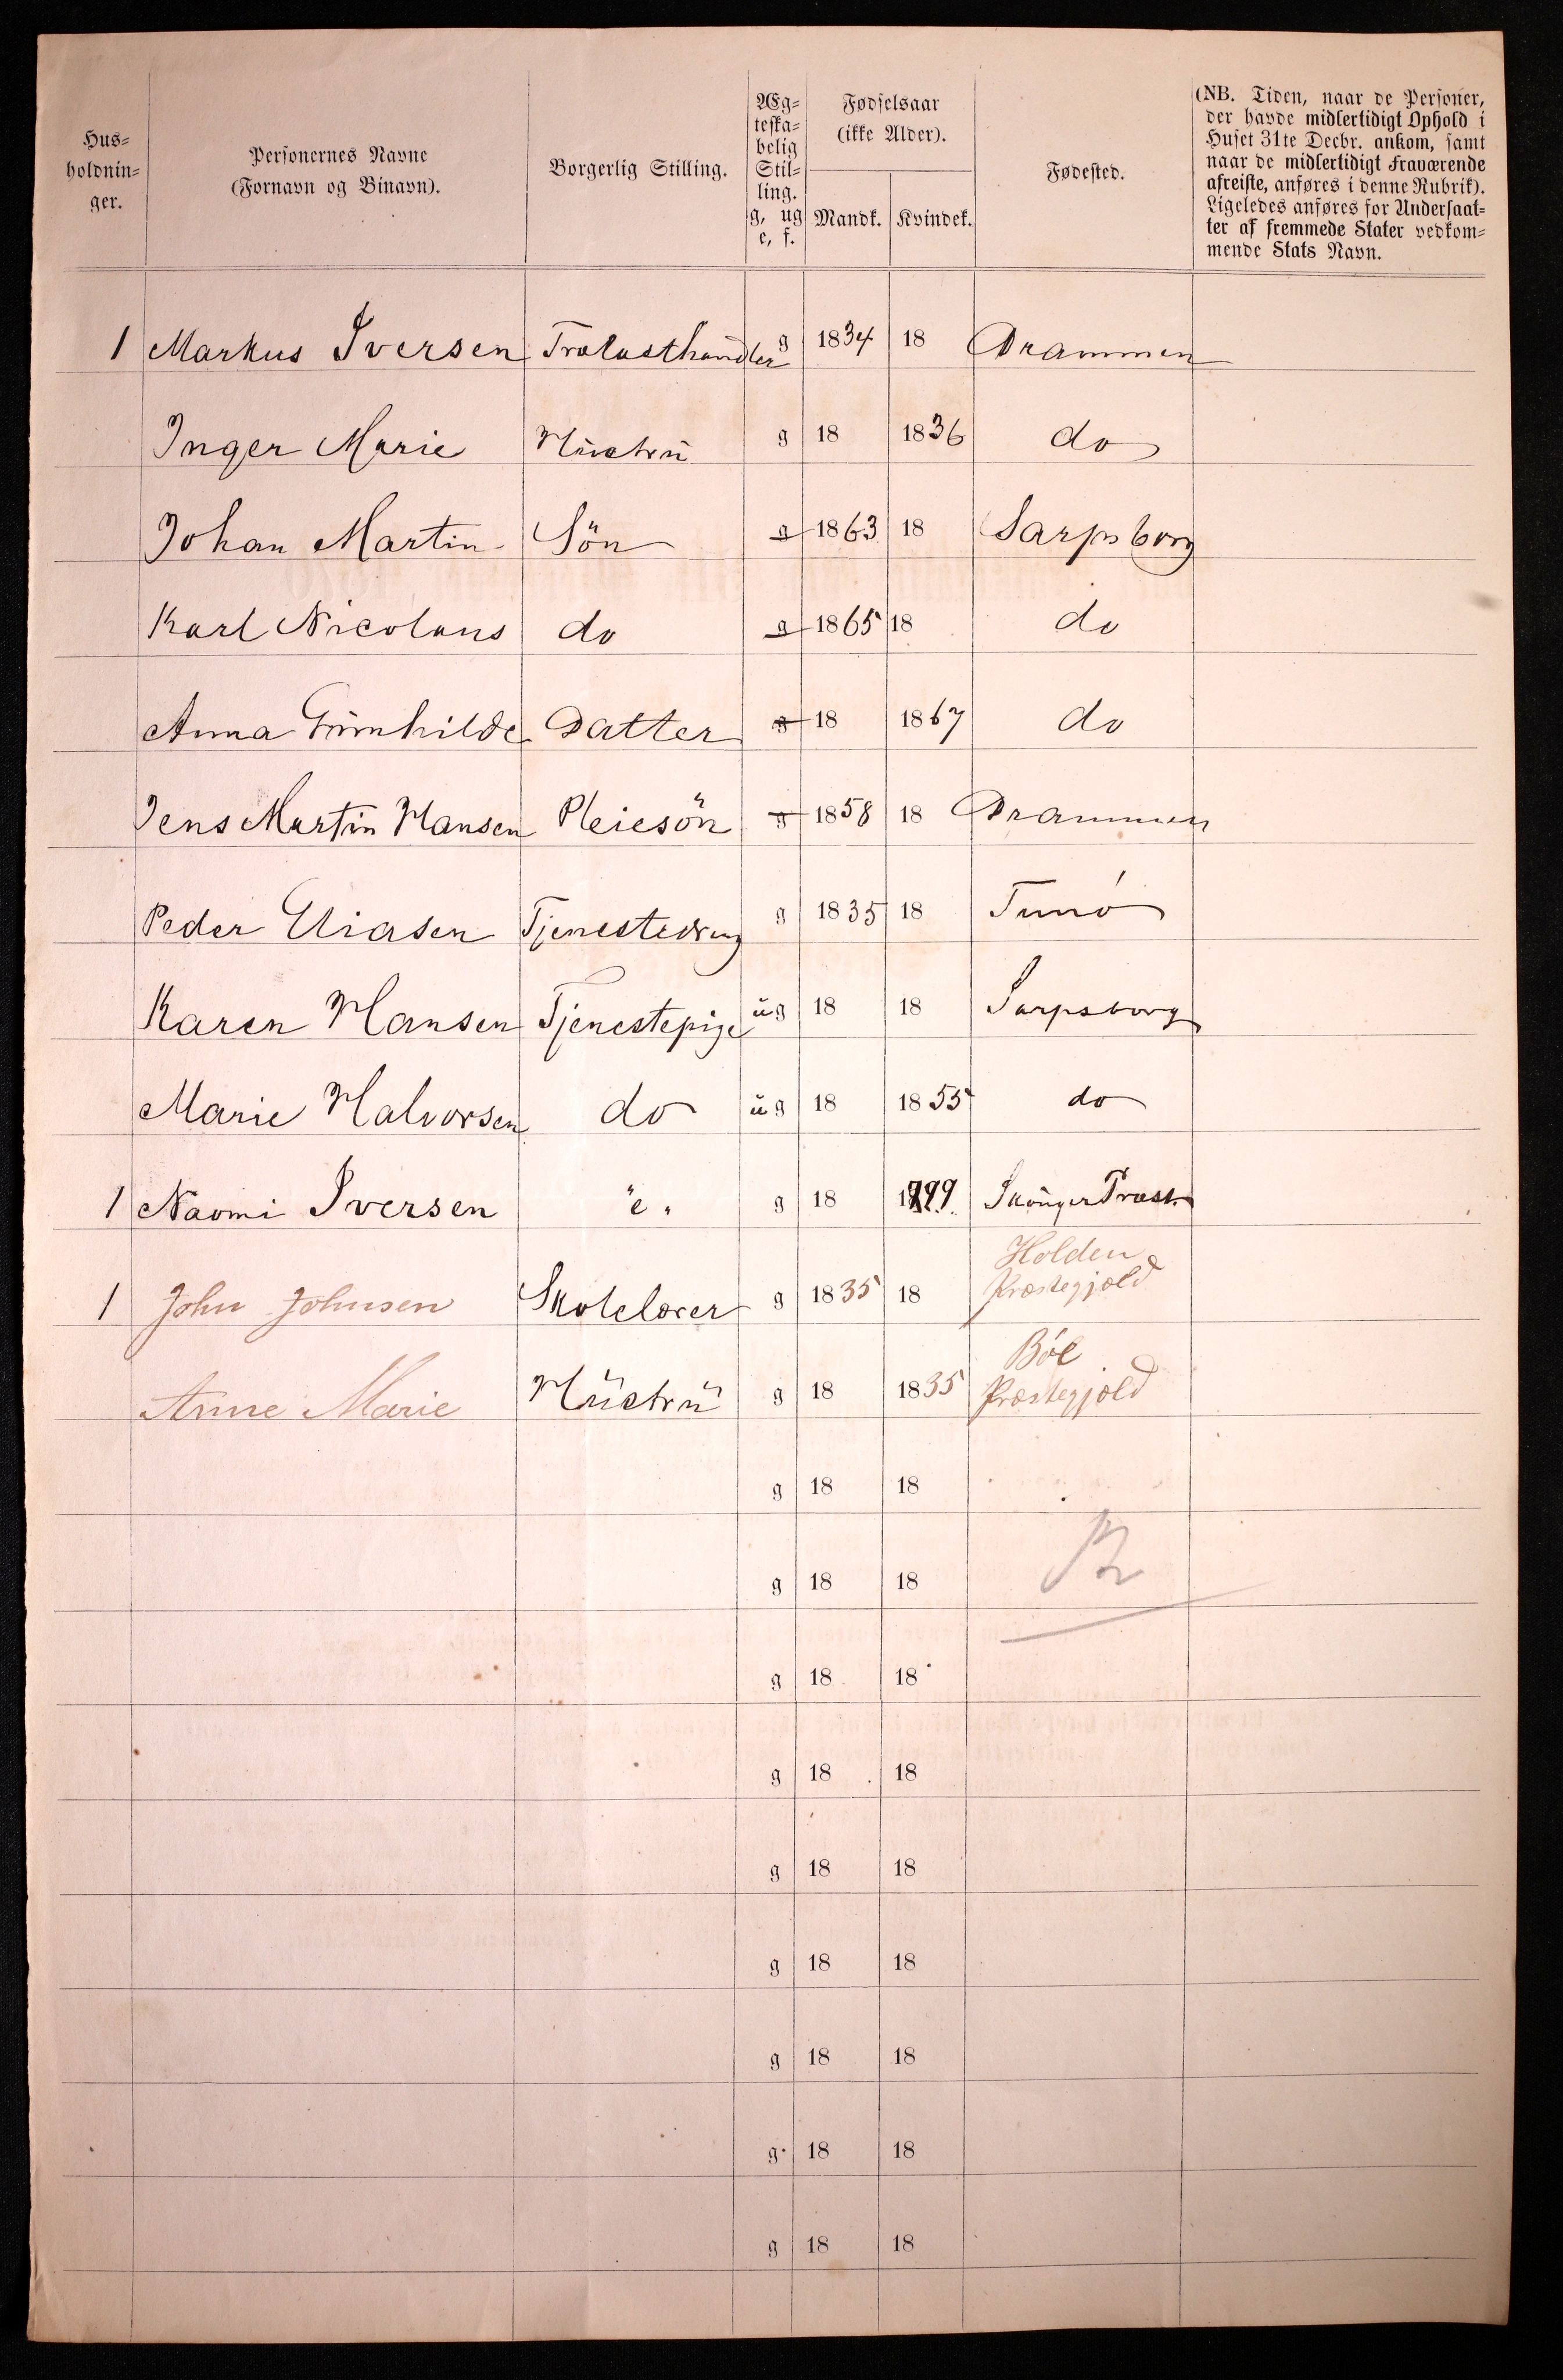 Hus=
holdnin=
ger.
Personernes Navne
(Fornavn og Binavn).
Borgerlig Stilling.
Æg=
teska=
belig
Stil=
ling.
g, ug
e, f.
Fødselsaar
(ikke Alder).
Mandk. Kvindek.
Fødested.
(NB. Tiden, naar de Personer,
der havde midlertidigt Ophold i
Huset 31te Decbr. ankom, samt
naar de midlertidigt Fraværende
afreiste, anføres i denne Rubrik).
Ligeledes anføres for Undersaat=
ter af fremmede Stater vedkom=
mende Stats Navn.
1 Markus Iversen Trælasthandler g 1834 18 Drammen
Inger Marie Hüstrü g 18 1836 do
Johan Martin Sön g 1863 18 Sarpsborg
Karl Nicolaus do g 1865 18 do
Anna Günhilde Datter g 18 1867 do
Jens Martin Hansen Pleiesön g 1858 18 Drammen
Peder Eliasen Tjenestedreng g 1835 18 Tunö
Karen Hansen Tjenestepige üg 18 18 Sarpsborg
Marie Halvorsen do üg 18 1855 do
1 Naomi Iversen "e" g 18 1799 Skouger Præst.
1 John Johnsen Skolelærer g 1835 18 Holden
Præstegjæld
Anne Marie Hüstrü g 18 1835 Böe
Præstegjæld
g 18 18
g 18 18
g 18 18
g 18 18
g 18 18
g 18 18
g 18 18
g 18 18
g 18 18